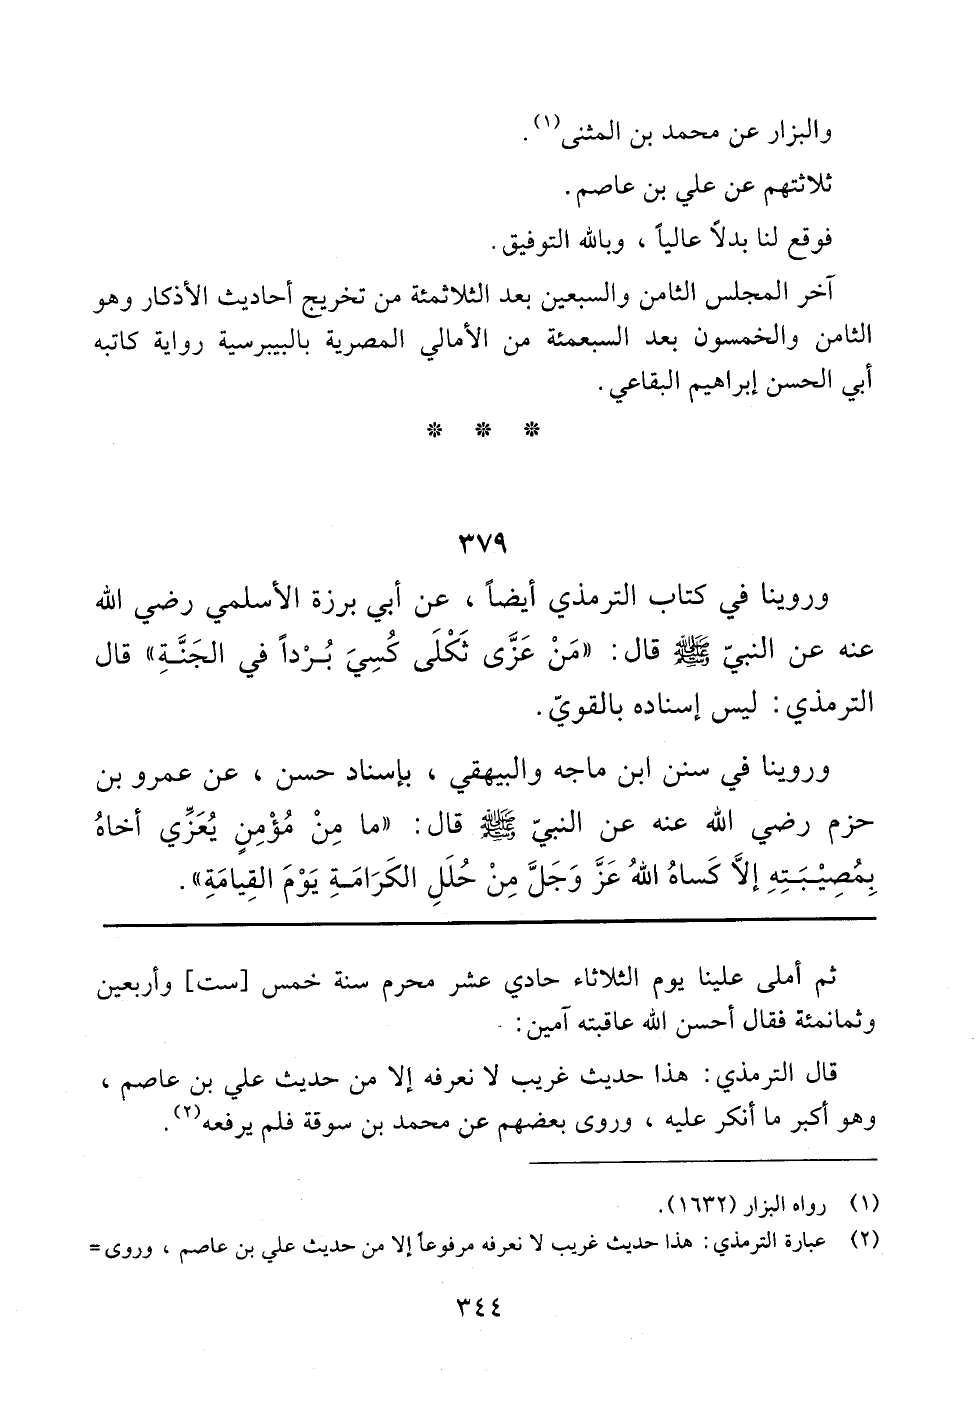 والبزار عن محمد بن المثنى(١).
ثلاثتهم عن علي بن عاصم.
فوقع لنا بدلاً عالياً ، وبالله التوفيق.
آخر المجلس الثامن والسبعين بعد الثلاثمئة من تخريج أحاديث الأذكار وهو
الثامن والخمسون بعد السبعمئة من الأمالي المصرية بالبيبرسية رواية كاتبه
أبي الحسن إبراهيم البقاعي.
* * *
٣٧٩
وروينا في كتاب الترمذي أيضاً ، عن أبي برزة الأسلمي رضي الله
عنه عن النبيّ ﷺ قال: «مَنْ عَزَّى ثَكْلَى كُسِيَ بُـرْداً في الجَنَّـةِ» قال
الترمذي: ليس إسناده بالقويّ.
وروينا في سنن ابن ماجه والبيهقي ، بإسناد حسن ، عن عمرو بن
حزم رضي الله عنه عن النبيّ ﷺ قال: «ما مِنْ مُؤْمِنٍ يُعَزِّي أخاهُ
بِمُصِيْـبَـتِهِ إلاَّ كَساهُ اللهُ عَزَّ وَجَلَّ مِنْ حُلَلِ الكَرَامَـةِ يَوْمَ القِيامَةِ».
ثم أملى علينا يوم الثلاثاء حادي عشر محرم سنة خمس [ست] وأربعين
وثمانمئة فقال أحسن الله عاقبته آمين:
قال الترمذي: هذا حديث غريب لا نعرفه إلا من حديث علي بن عاصم ،
وهو أكبر ما أنكر عليه ، وروى بعضهم عن محمد بن سوقة فلم يرفعه(٢).
(١) رواه البزار (١٦٣٢).
(٢) عبارة الترمذي: هذا حديث غريب لا نعرفه مرفوعاً إلا من حديث علي بن عاصم ، وروى=
٣٤٤